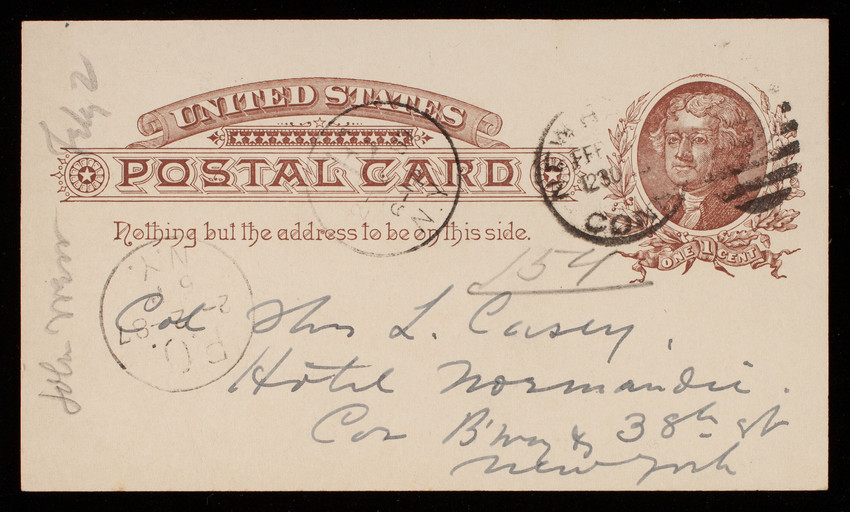 UNITED STATES
POSTAL CARD
Nothing but the address to be on this side.
ONE 1 CENT
NEW H
FEB
1230
CONN
N.Y.
154
Col Thos L. Casey,
Hotel Normandie.
Cor B'way & 38th st
New York
N.Y.
2-2-87
P.O.
Feby 2
John